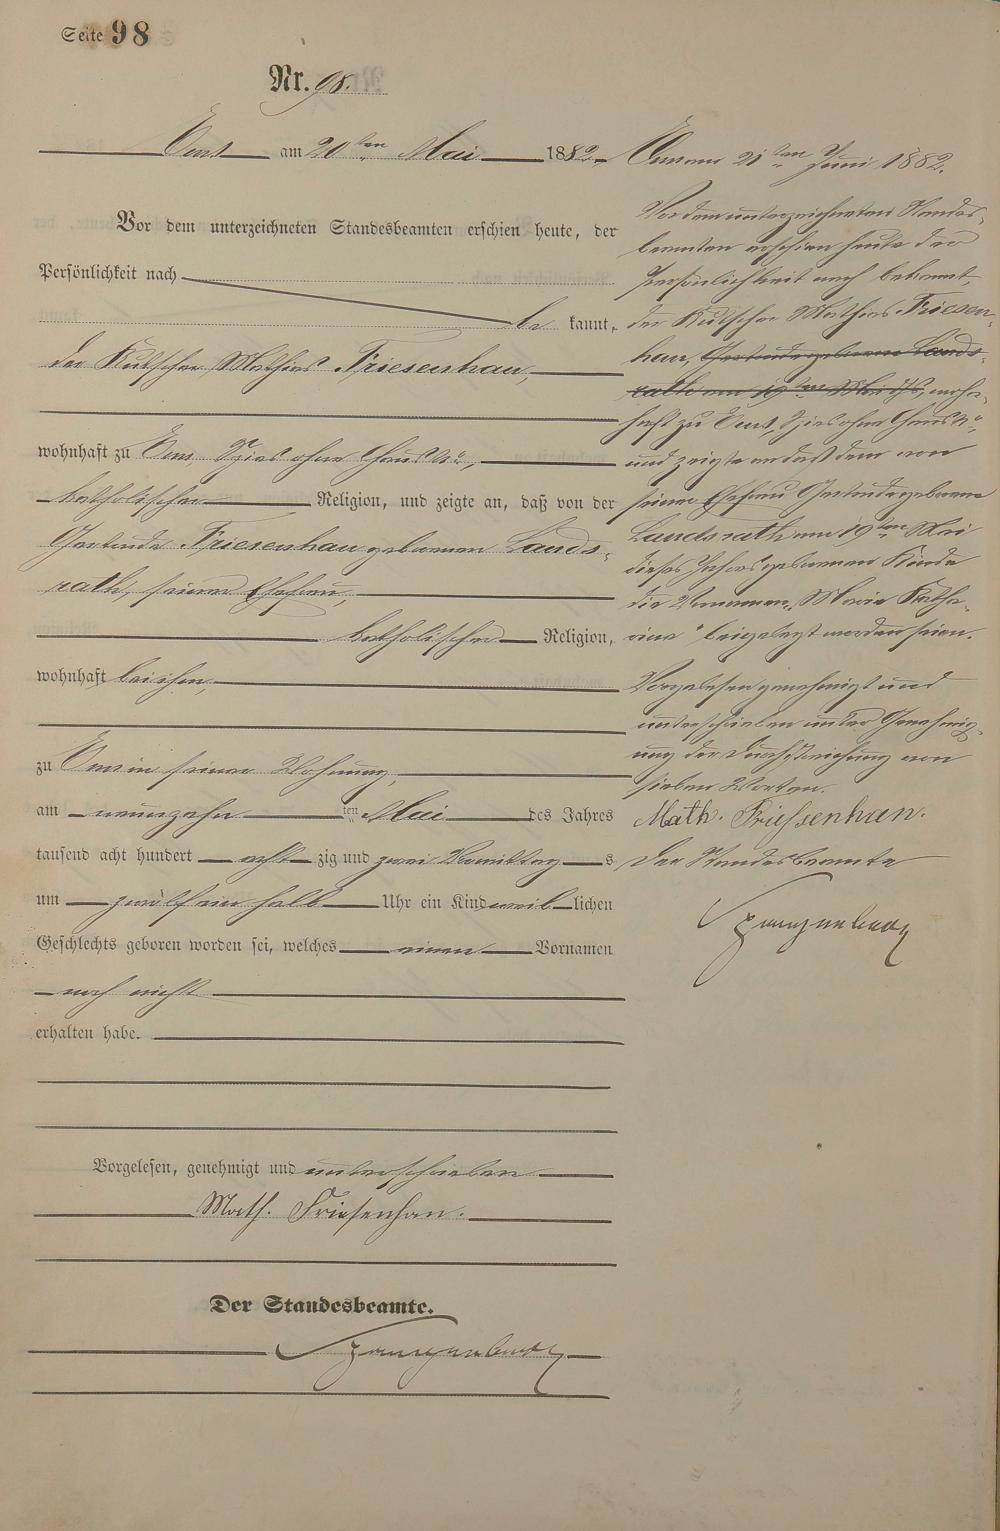 Seite 98
Nr. 98.
Ems am 20ten Mai 1882.
Vor dem unterzeichneten Standesbeamten erschien heute, der
Persönlichkeit nach
be kannt,
der Kutscher Mathias Friesenhan,
wohnhaft zu Ems, Spies ohne Haus No,
katholischer Religion, und zeigte an, daß von der
Gertrude Friesenhan geborenen Lands-
rath, seiner Ehefrau,
katholischer Religion,
wohnhaft bei ihm,
zu Ems in seiner Wohnung,
am neunzehn ten Mai des Jahres
tausend acht hundert acht zig und zwei Vormittag s
um zwölfeinhalb Uhr ein Kind weib lichen
Geschlechts geboren worden sei, welches einen Vornamen
noch nicht
erhalten habe.
Vorgelesen, genehmigt und unterschrieben
Math. Friesenhan.
Der Standesbeamte.
Ems am 21ten Juni 1882.
Vor dem unterzeichneten Standes-
beamten erschien heute der
Persönlichkeit nach bekannt,
der Kutscher Mathias Friesen-
han, Gertrude geborene Lands-
rath am 19ten Mai ds, wohn-
haft zu Ems, Spies ohne Haus No,
und zeigte an daß dem von
seiner Ehefrau Gertrude geborene
Landsrath am 19ten Mai
dieses Jahres geborenen Kinde
die Vornamen „Maria Katha-
rina" beigelegt worden seien.
Vorgelesen genehmigt und
unterschrieben unter Genehmig-
ung der Durchstreichung von
sieben Worten.
Math. Friesenhan.
Der Standesbeamte